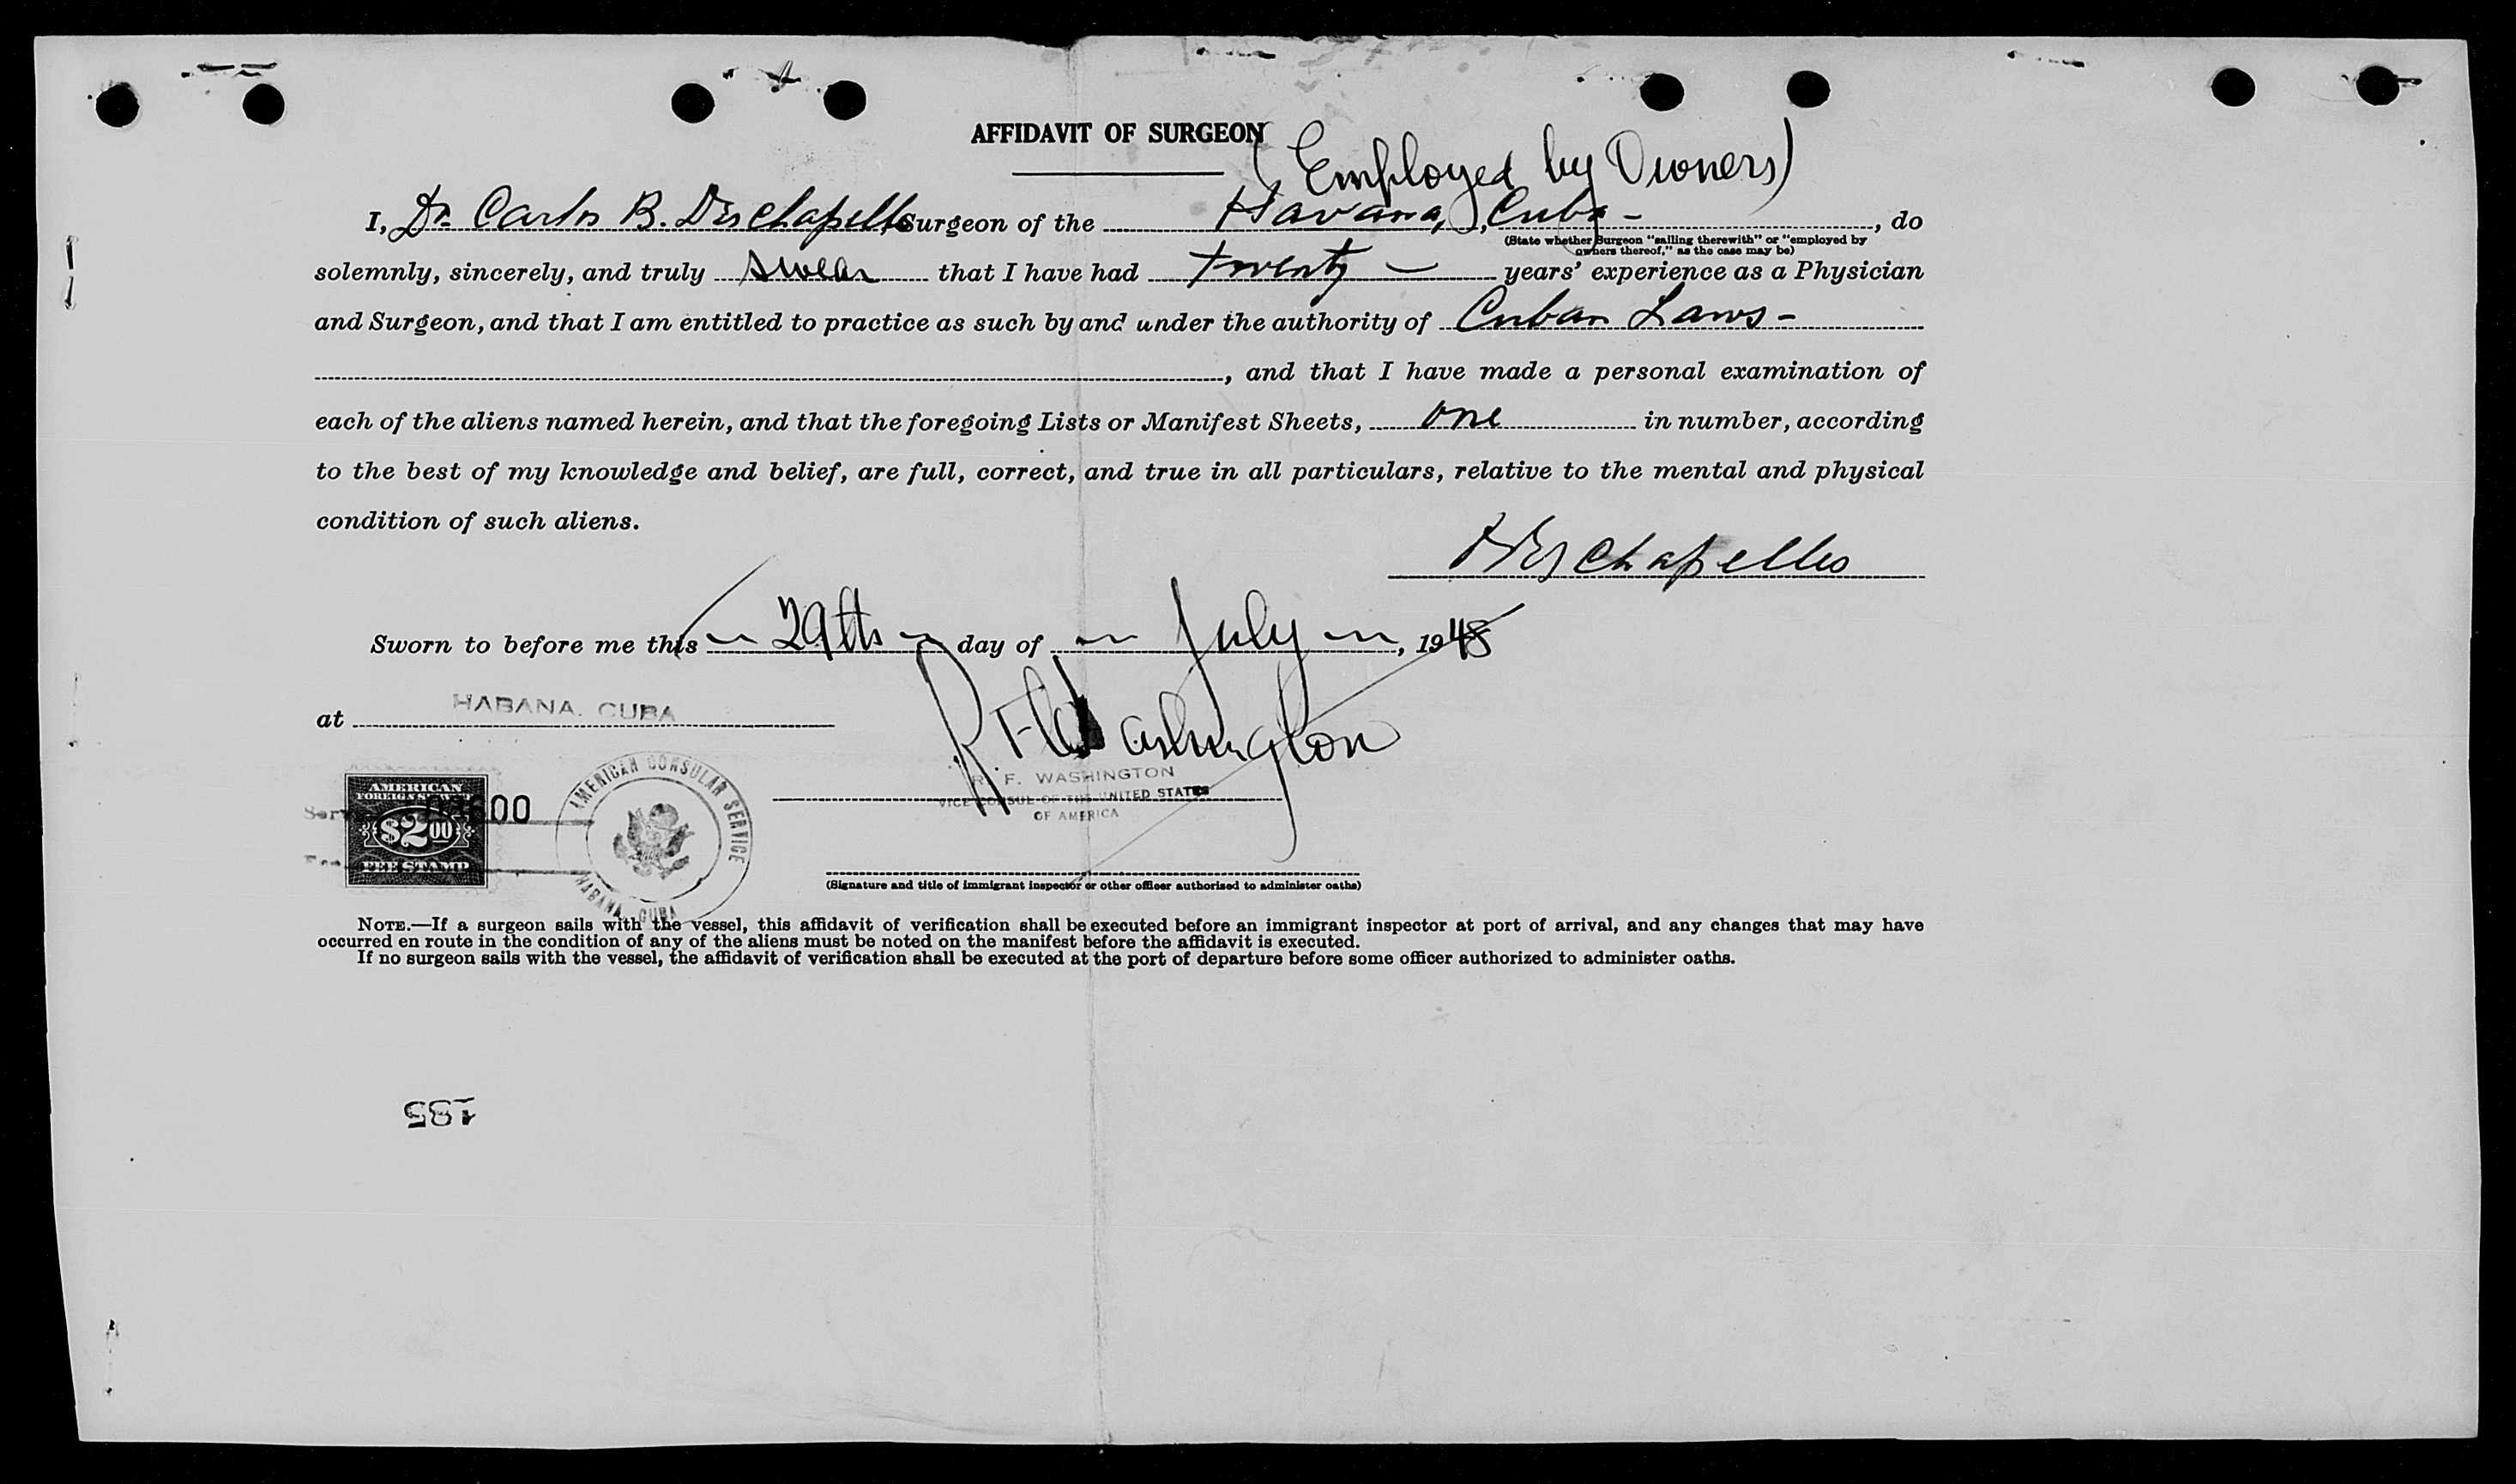 AFFIDAVIT OF SURGEON
(Employed by Owners)
I, Dr. Carlos B. Deschapelles, Surgeon of the Havana, Cuba -, do
(State whether Surgeon "sailing therewith" or "employed by
owners thereof," as the case may be)
solemnly, sincerely, and truly swear that I have had twenty - years' experience as a Physician
and Surgeon, and that I am entitled to practice as such by and under the authority of Cuban Laws -
, and that I have made a personal examination of
each of the aliens named herein, and that the foregoing Lists or Manifest Sheets, one in number, according
to the best of my knowledge and belief, are full, correct, and true in all particulars, relative to the mental and physical
condition of such aliens.
Deschapelles
Sworn to before me this 29th day of July, 1948
at HABANA. CUBA
R F Washington
R. F. WASHINGTON
VICE CONSUL OF THE UNITED STATES
OF AMERICA
AMERICAN
FOREIGN SERVICE
$2.00
FEE STAMP
AMERICAN CONSULAR SERVICE
HABANA, CUBA
(Signature and title of immigrant inspector or other officer authorized to administer oaths)
NOTE.—If a surgeon sails with the vessel, this affidavit of verification shall be executed before an immigrant inspector at port of arrival, and any changes that may have
occurred en route in the condition of any of the aliens must be noted on the manifest before the affidavit is executed.
If no surgeon sails with the vessel, the affidavit of verification shall be executed at the port of departure before some officer authorized to administer oaths.
185